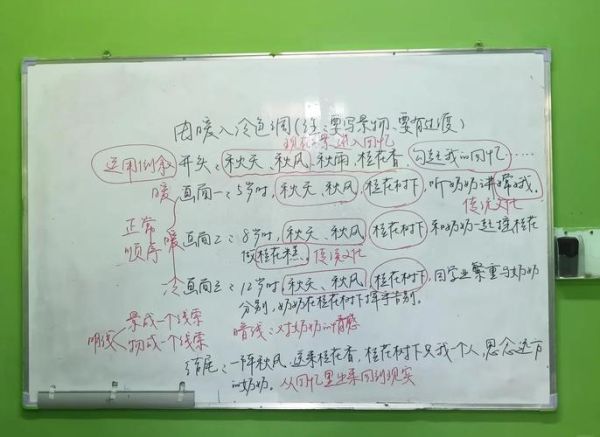 由暖入冷色调(注:要写景物、要有过渡)
现在景进入回忆
运用倒叙 开头:秋天、秋风、秋雨、桂花香、勾起我的回忆……
暖 画面一:5岁时,秋天、秋风、桂花树下,听奶奶讲嫦娥。
传统文化
正常顺序
暖 画面2:8岁时,秋天、秋风、桂花树下,和奶奶一起撞桂花
做桂花糕。 传统文化
冷 画面三:12岁时,秋天、秋风、桂花树下,因学业繁重与奶奶
分别,奶奶在桂花树下挥手告别。
明线 景成一个线索
物成一个线索
暗线:对奶奶的情感
结尾:一阵秋风,送来桂花香,桂花树下只我一个人,思念远方
的奶奶。从回忆里出来回到现实